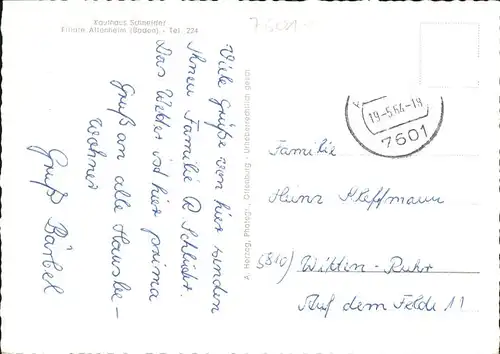 Kaufhaus Schneider
Filiale Altenheim (Baden) - Tel. 224
7601
Viele Grüße von hier senden
Ihnen Familie A. Schlühr.
Das Wetter ist hier prima
Gruß an alle Hausbe-
wohner
Gruß Bärbel
19-5.64-19
7601
Familie
Heinz Kleffmann
5810) Witten-Ruhr
Auf dem Felde 11